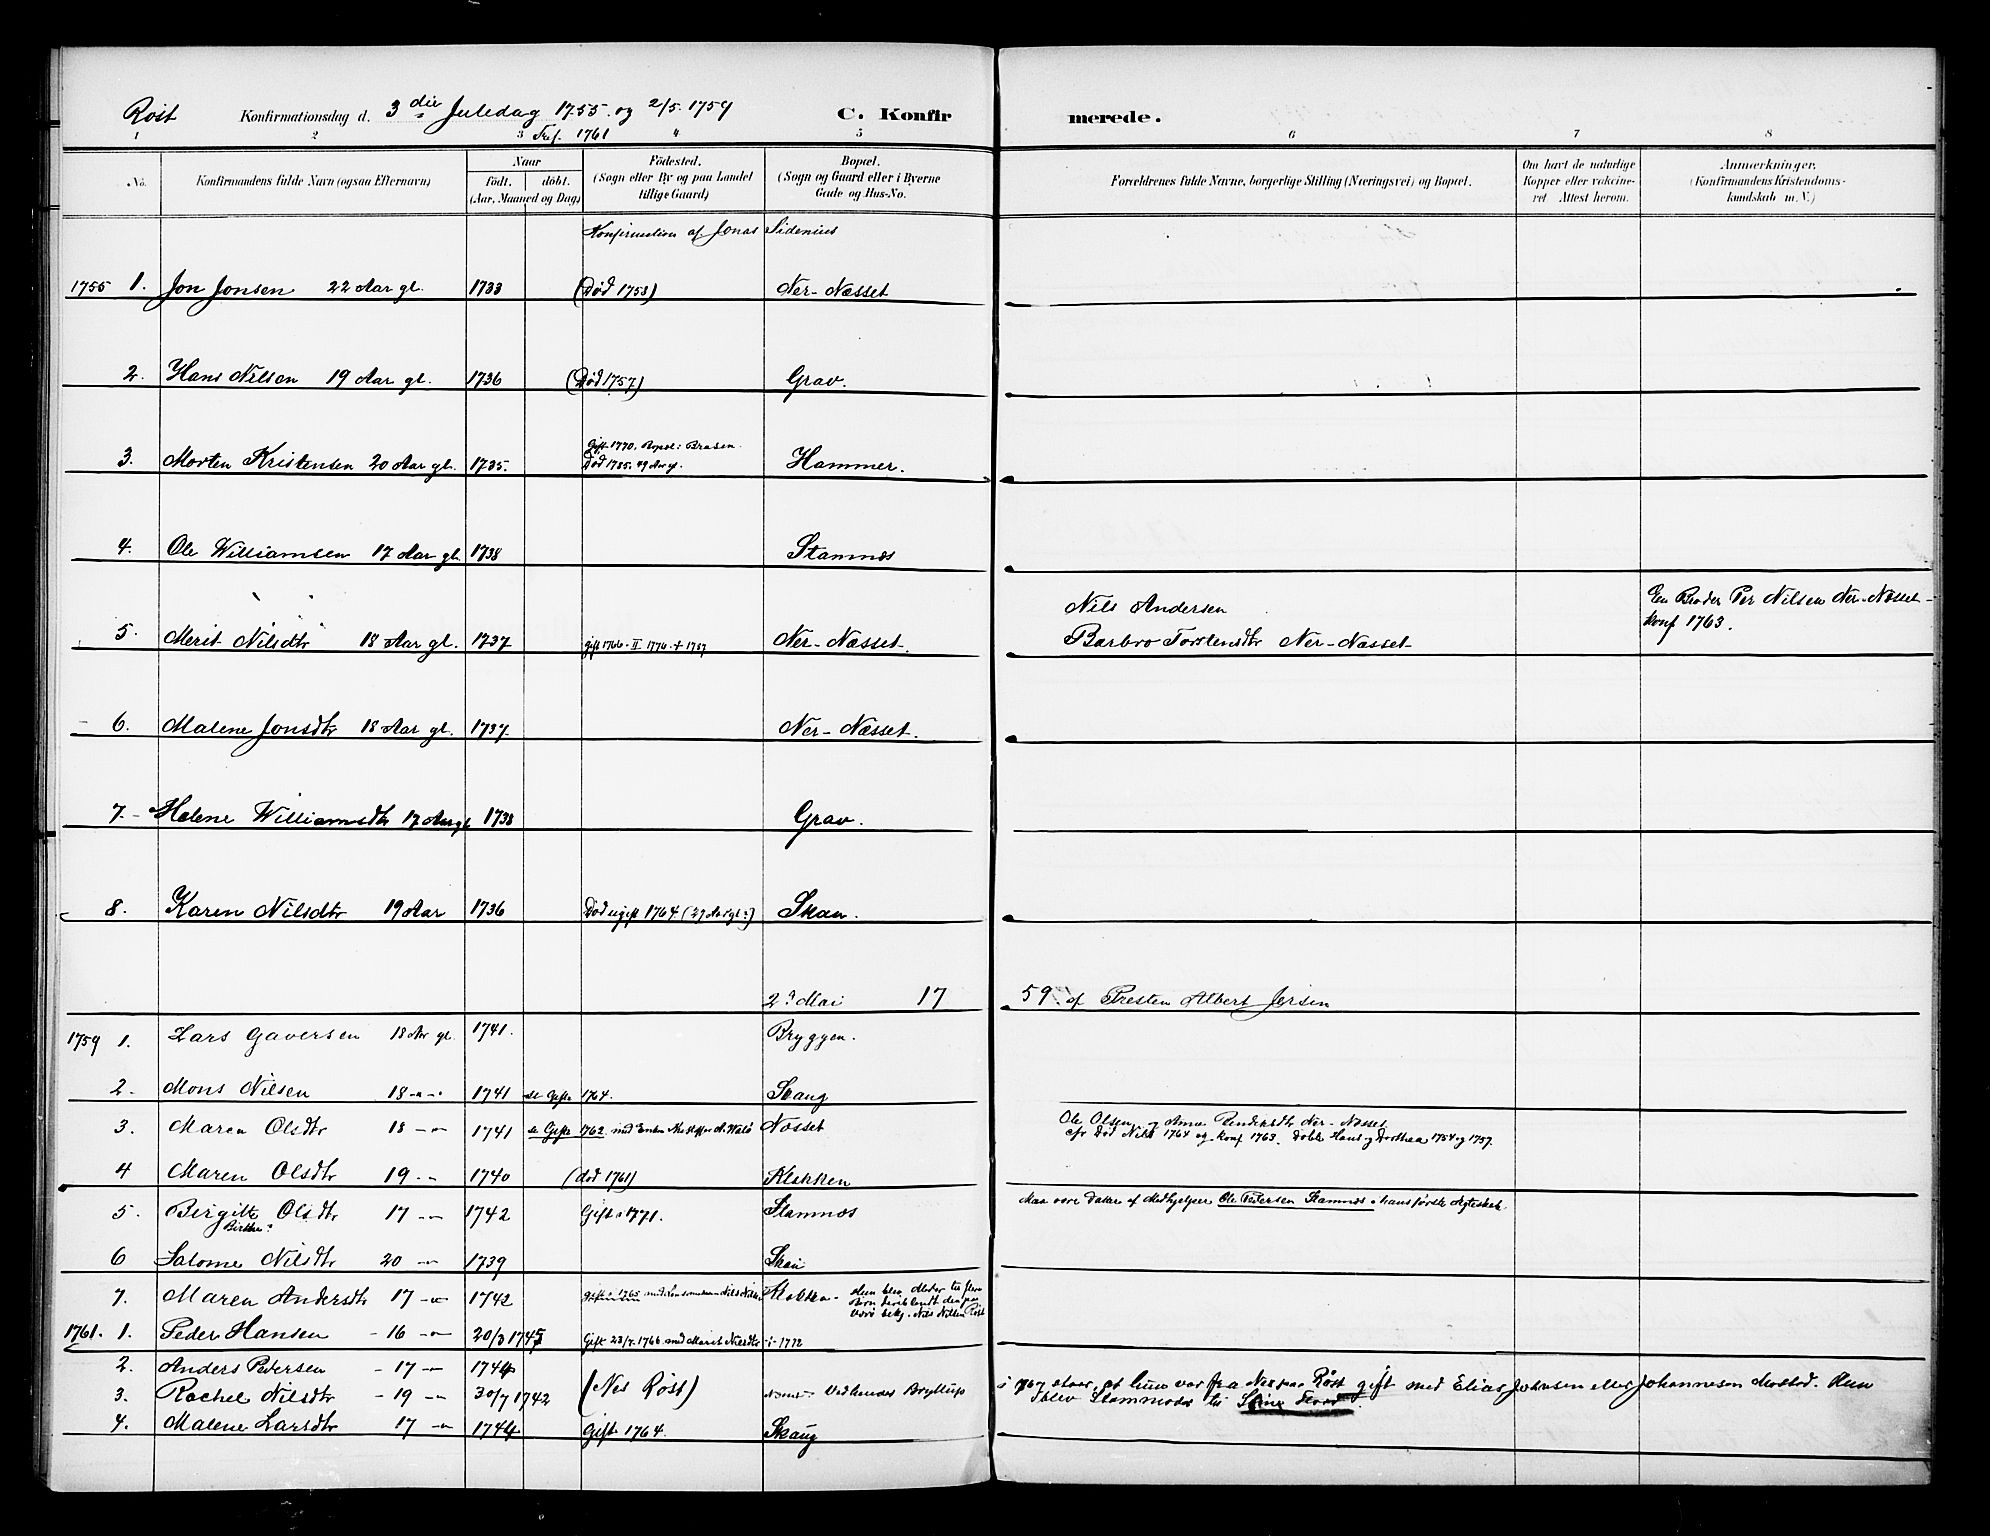 Röst Konfirmationsdag d. 3die Juledag 1755. og 2/5. 1759 C. Konfirmerede.
Tref. 1761
1 2 3 4 5 6 7 8
No. Konfirmandens fulde Navn (ogsaa Efternavn) Naar födt. döbt. (Aar, Maaned og Dag) Födested. (Sogn eller By og paa Landet tillige Gaard) Bopæl. (Sogn og Gaard eller i Byerne Gade og Hus-No. Forældrenes fulde Navne, borgerlige Stilling (Næringsvei) og Bopæl. Om havt de naturlige Kopper eller vakcineret. Attest herom. Anmærkninger. (Konfirmandens Kristendomskundskab m. V.)
Konfirmation af Jonas Sidenius
1755 1. Jon Jonsen 22 Aar gl. 1733 (Död 1758) Ner-Næsset
2. Hans Nilsen 19 Aar gl. 1736 (Död 1757) Grav.
Gift 1770. Bopæl: Brasen.
3. Morten Kristensen 20 Aar gl. 1735. Död 1785. 49 Aar gl. Hammer.
4. Ole Williamsen 17 Aar gl. 1738 Stamnæs
Nils Andersen En Broder Per Nilsen Ner-Næsset
5. Merit Nilsdtr 18 Aar gl. 1737 gift 1766 - II 1776 + 1787 Ner-Næsset. Barbro Torstensdtr Ner-Næsset konf 1763.
6. Malene Jonsdtr 18 Aar gl. 1737. Ner-Næsset.
7. Helene Williamsdtr 17 Aar gl 1738 Grav.
8. Karen Nilsdtr 19 Aar 1736 Död ugift 1764 (27 Aar gl:) Skau.
2. Mai 1759. af Presten Albert Jersen
1759 1. Lars Gaversen 18 Aar gl. 1741. Bryggen.
2. Mons Nilsen 18 -"- 1741 se Gifte 1764. Skaug
3. Maren Olsdtr 18 -"- 1741 se Gifte 1762 med Enkem. Næsset Ole Olsen og Anne Bendiksdtr Ner-Næsset
cfr Död Nils 1764 og konf 1763. Döbte Hans og Dorthea 1754 og 1757.
4 Maren Olsdtr 19 -"- 1740 (död 1761) Klakken
5. Birgitte Olsdtr 17 -"- 1742 Gift 1771. Stamnæs Maa være Datter af Medhjelper Ole Pedersen Stamnæs i hans förste Ægteskab.
Birthe?
6 Salome Nilsdtr 20 -"- 1739 Skau
7. Maren Andersdtr 17 -"- 1742 gift 1765 med Nils Nilsen Klakken - Hun blev Moder til flere Börn
Værö. Nils Nilsen Röst
1761. 1. Peder Hansen - 16 -"- 20/3 1745 Gift 23/7. 1766 med Marit Nilsdtr - 1772
2. Anders Pedersen - 17 -"- 1744
3. Rachel Nilsdtr - 19 -"- 30/7 1742 (Nes Röst) Ved hendes Bryllup i 1767 staar, at hun var fra Nes paa Röst gift med Elias Johnsen eller Johannesen Mostad. Hun
blev Stammoder til
4. Malene Larsdtr 17 -"- 1744 Gift 1764. Skaug